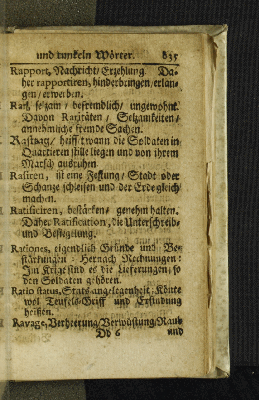 und tunkeln Wörter. 635
Rapport, Nachricht/ Erzehlung Da-
her rapportiren, hinderbringen, erlan-
gen/ erwerben.
Rar, selzam/ befremdlich/ ungewohnt.
Davon Raritäten/ Selzamkeiten/
annehmliche fremde Sachen.
Rasttag/ heist wann die Soldaten in
Quartieren stille liegen und von ihrem
Marsch ausruhen
Rasiren, ist eine Festung/ Stadt oder
Schanze schleifen und der Erde gleich
machen.
Ratificiren, bestärken/ genehm halten.
Daher Ratification, die Unterschreib-
und Besieglung.
Rationes, eigendlich Gründe und Be-
stärkungen: Hernach Rechnungen:
Im Krige sind es die Lieferungen/ so
den Soldaten gehören.
Ratio status, Stats-angelegenheit: Könte
wol Teufels-Griff und Erfindung
heissen.
Ravage, Verheerung/ Verwüstung/ Raub
Dd 6 und